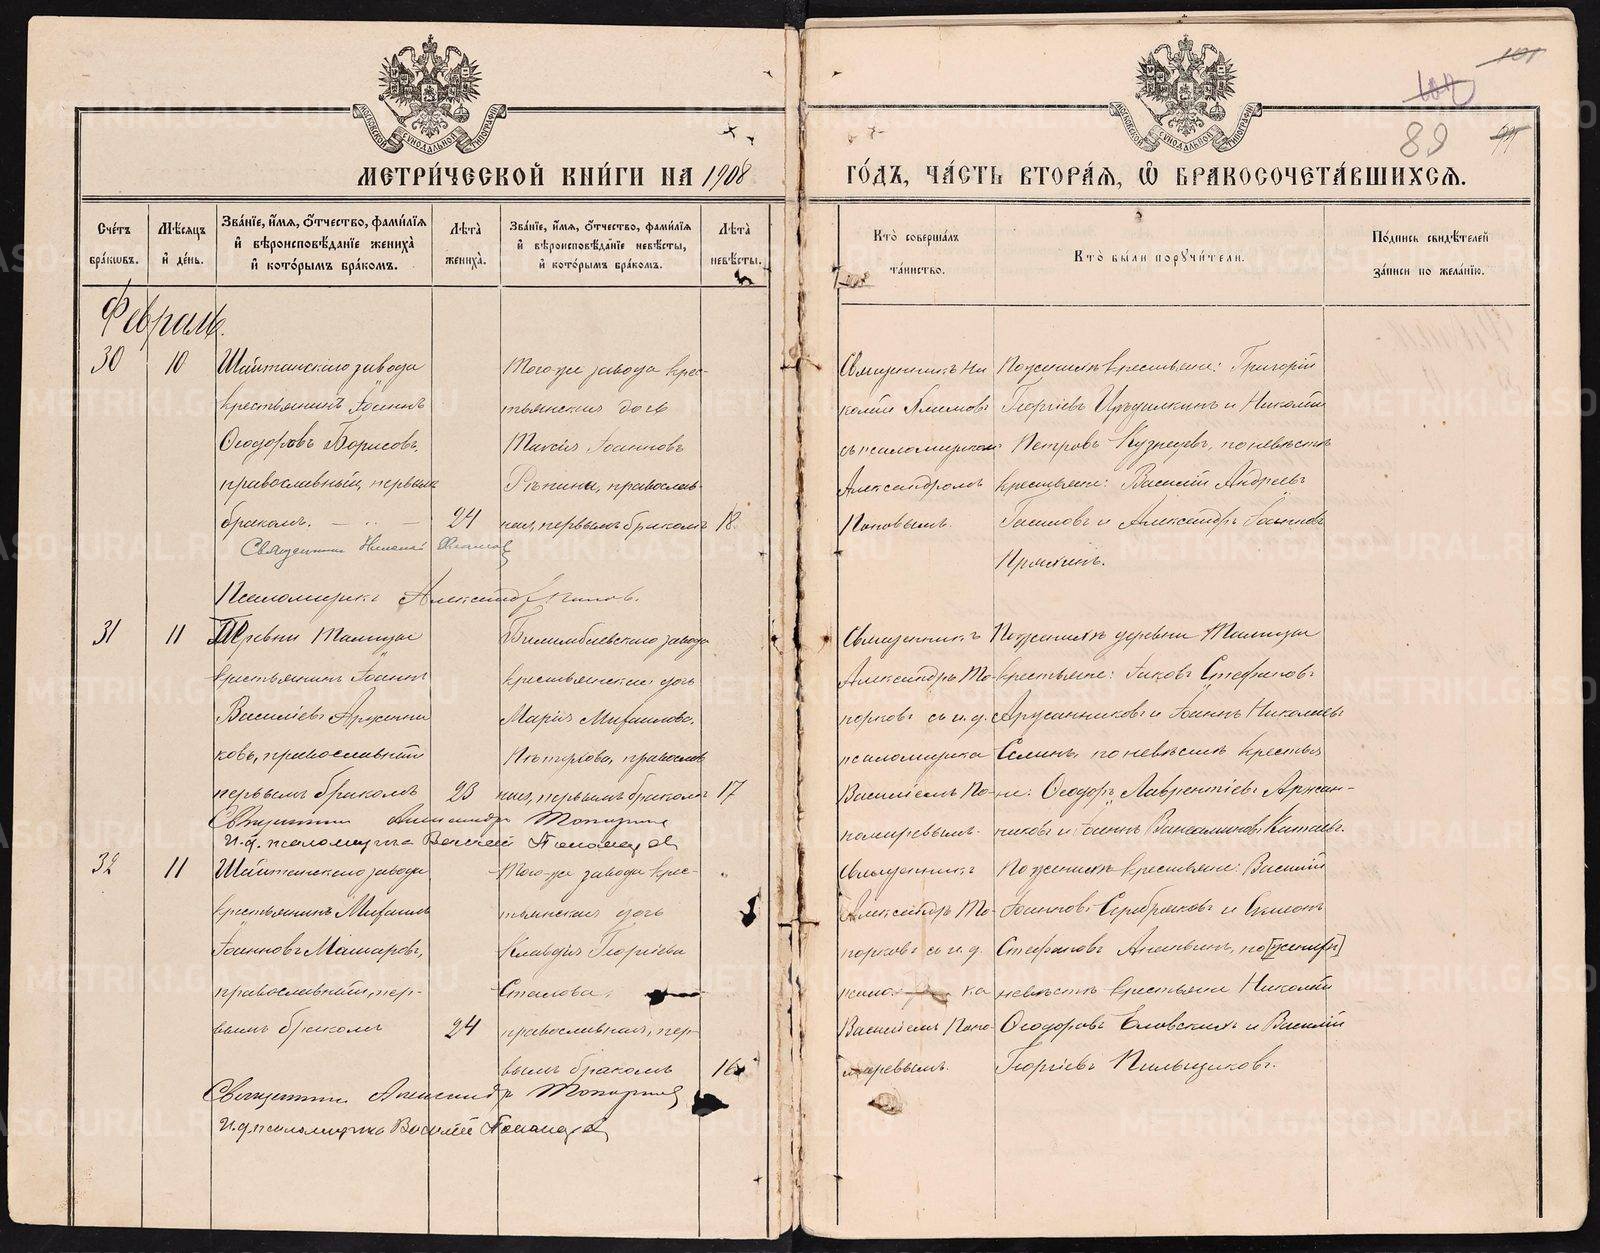 МЕТРИЧЕСКОЙ КНИГИ НА 1908
ГОДЪ, ЧАСТЬ ВТОРАЯ, Ѡ БРАКОСОЧЕТАВШИХСЯ.
101
100
89
МОСКОВСКОЙ СУНОДАЛЬНОЙ ТИПОГРАФІИ
МОСКОВСКОЙ СУНОДАЛЬНОЙ ТИПОГРАФІИ
Счетъ браковъ.
Мѣсяцъ и день.
Званіе, имя, отчество, фамилія
и вѣроисповѣданіе жениха
и которымъ бракомъ.
Лѣта
жениха.
Званіе, имя, отчество, фамилія
и вѣроисповѣданіе невѣсты,
и которымъ бракомъ.
Лѣта
невѣсты.
Кто совершалъ
таинство.
Кто были поручители.
Подпись свидѣтелей
записи по желанію.
Февраль.
30
10
Шайтанскаго завода
крестьянинъ Іоаннъ
Ѳеодоровъ Борисовъ,
православный, первымъ
бракомъ.
24
Того-же завода крес-
тьянская дочь
Іоаннова
Рѣпина, православ-
ная, первымъ бракомъ
18.
Священникъ Ни
колай Климовъ
съ псаломщикомъ
Александромъ
Поповымъ.
По женихѣ крестьяне: Григорій
Георгіевъ и Николай
Петровъ Кузнецовъ, по невѣстѣ
крестьяне: Василій Андреевъ
и Александръ Іоанновъ
Священникъ Николай Климовъ
Псаломщикъ Александръ Поповъ.
31
11
Деревни Талицы
крестьянинъ Іоаннъ
Васильевъ Аржанни
ковъ, православный
первымъ бракомъ
23
Билимбаевскаго завода
крестьянская дочь
Марія Михаилова
православ
ная, первымъ бракомъ
17
Священникъ
Александръ То-
порковъ съ и. д.
псаломщика
Василіемъ По-
номаревымъ.
По женихѣ деревни Талицы
крестьяне: Іаковъ Стефановъ
Аржанниковъ и Іоаннъ Николаевъ
по невѣстѣ крестья
не: Ѳеодоръ Лаврентіевъ Аржан-
никовъ и Іоаннъ Веніаминовъ Китаевъ.
Священникъ Александръ Топорковъ
И. д. псаломщика Василій Пономаревъ
32
11
Шайтанскаго завода
крестьянинъ Михаилъ
Іоанновъ
православный, пер-
вымъ бракомъ
24
Того-же завода крес-
тьянская дочь
Клавдія Георгіева
православная, пер-
вымъ бракомъ
16
Священникъ
Александръ То-
порковъ съ и. д.
псало ка
Василіемъ Поно
маревымъ.
По женихѣ крестьяне: Василій
Іоанновъ Серебряковъ и Симеонъ
Стефановъ Ананьинъ, по [женихѣ]
невѣстѣ крестьяне Николай
Ѳеодоровъ Еловскихъ и Василій
Георгіевъ Пильщиковъ.
Священникъ Александръ Топорковъ
И. д. псаломщика Василій Пономаревъ
METRIKI.GASO-URAL.RU